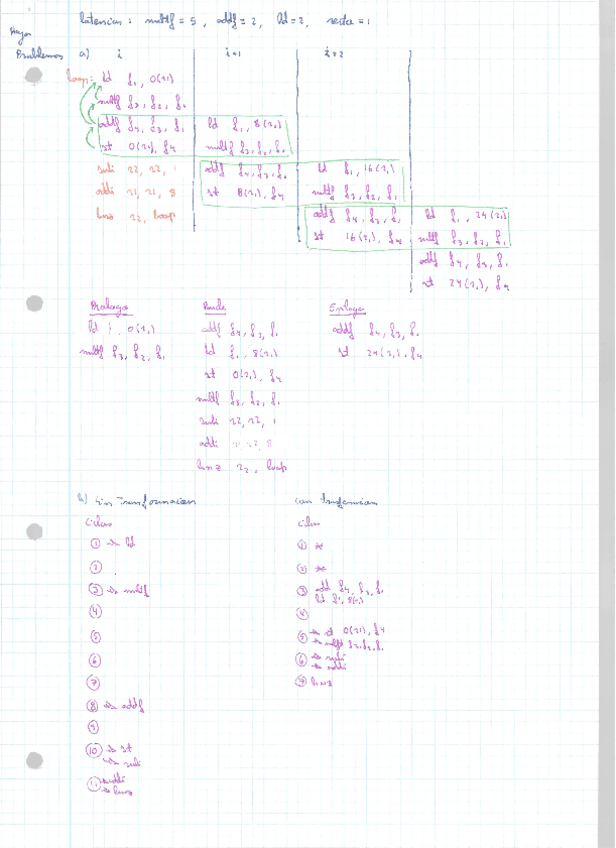 latencias: multf = 5, addf = 2, ld = 2, resta = 1
Problemas a) i i+1 i+2
loop: ld f1, 0(r1)
multf f3, f2, f1
addf f4, f3, f1 ld f1, 8(r1)
st 0(r1), f4 multf f3, f2, f1
subi r2, r2, 1 addf f4, f3, f1 ld f1, 16(r1)
addi r1, r1, 8 st 8(r1), f4 multf f3, f2, f1
bnez r2, loop addf f4, f3, f1 ld f1, 24(r1)
st 16(r1), f4 multf f3, f2, f1
addf f4, f3, f1
st 24(r1), f4
Prologo Bucle Epilogo
ld f, 0(r1) addf f4, f3, f1 addf f4, f3, f1
multf f3, f2, f1 ld f1, 8(r1) st 24(r1), f4
st 0(r1), f4
multf f3, f2, f1
subi r2, r2, 1
addi
bnez r2, loop
b) Sin Transformacion con trasformacion
Ciclos Ciclos
1 → ld 1 *
2 2 *
3 → multf 3 add f4, f3, f1
ld f1, 8(r1)
4 4
5 5 → st 0(r1), f4
→ multf f3, f2, f1
6 6 → subi
→ addi
7 7 bnez
8 → addf
9
10 → st
→ subi
11 → addi
→ bnez